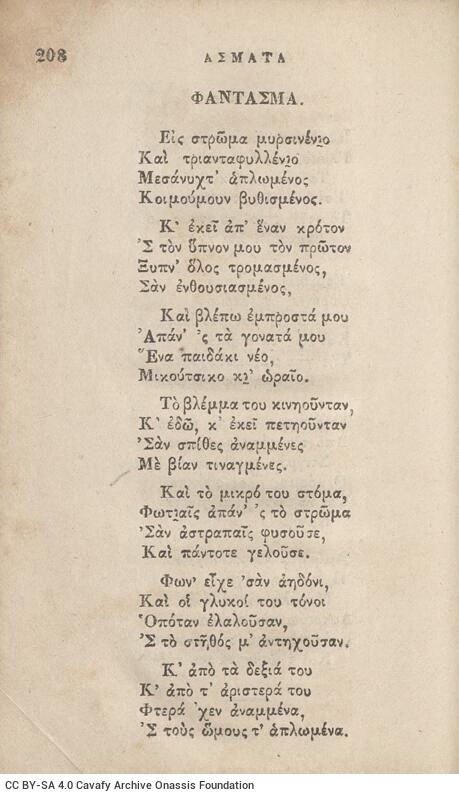 208
ΑΣΜΑΤΑ
ΦΑΝΤΑΣΜΑ.
Εἰς στρῶμα μυρσινένι̮ο
Καὶ τριανταφυλλένι̮ο
Μεσάνυχτ' ἁπλωμένος
Κοιμούμουν βυθισμένος.
Κ' ἐκεῖ ἀπ' ἕναν κρότον
Ἐς τὸν ὕπνον μου τὸν πρῶτον
Ξυπν' ὅλος τρομασμένος,
Σὰν ἐνθουσιασμένος,
Καὶ βλέπω ἐμπροστά μου
Ἀπάν' 'ς τὰ γονατά μου
Ἕνα παιδάκι νέο,
Μικούτσικο κι̮' ὡραῖο.
Τὸ βλέμμα του κινηοῦνταν,
Κ' ἐδῶ, κ' ἐκεῖ πετηοῦνταν
'Σὰν σπίθες ἀναμμένες
Μὲ βίαν τιναγμένες.
Καὶ τὸ μικρό του στόμα,
Φωτι̮αῖς ἀπάν' 'ς τὸ στρῶμα
'Σὰν ἀστραπαῖς φυσοῦσε,
Καὶ πάντοτε γελοῦσε.
Φων' εἶχε 'σὰν ἀηδόνι,
Καὶ οἱ γλυκοί του τόνοι
Ὁπόταν ἐλαλοῦσαν,
'Σ τὸ στῆθός μ' ἀντηχοῦσαν.
Κ' ἀπὸ τὰ δεξιά του
Κ' ἀπὸ τ' ἀριστερά του
Φτερά 'χεν ἀναμμένα,
'Σ τοὺς ὤμους τ' ἁπλωμένα.
CC BY-SA 4.0 Cavafy Archive Onassis Foundation